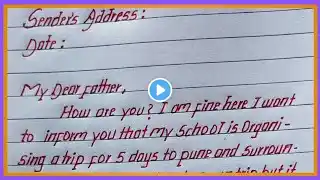 Sender's Address:
Date:
My Dear father,
How are you? I am fine here I want
to inform you that my school is Organi-
sing a trip for 5 days to pune and Surroun-
trip but it